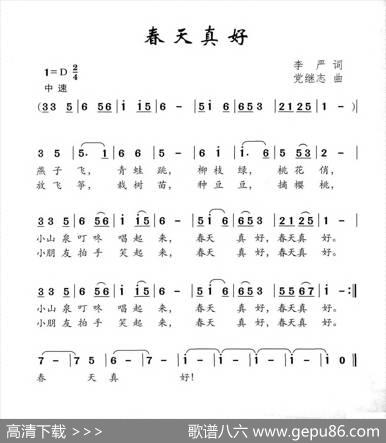 春天真好
1=D 2/4
中速
李严 词
党继志 曲
(33 5 | 6 56 | i i5 | 6 - | 5i 6 | 653 | 2125 | 1 - ) |
3 5 | 5. 1 | 6 66 | 5 - | 1 6 | 6i | 5 53 | 2 - |
燕子飞, 青蛙跳, 柳枝绿, 桃花俏,
放飞筝, 栽树苗, 种豆豆, 摘樱桃,
33 5 | 6 56 | i i5 | 6 - | 5i 6 | 653 | 2125 | 1 - |
小山泉叮咚唱起来, 春天真好, 春天真好。
小朋友拍手笑起来, 春天真好, 春天真好。
33 5 | 6 56 | i i5 | 6 - | 5i 6 | 653 | 5567 | i - :||
小山泉叮咚唱起来, 春天真好, 春天真好。
小朋友拍手笑起来, 春天真好, 春天真好。
7 - | 7 5 | 6 - | 7 - | i - | i - | i - | i 0 ||
春天真好!
高清下载 >>>
歌谱八六 www.gepu86.com